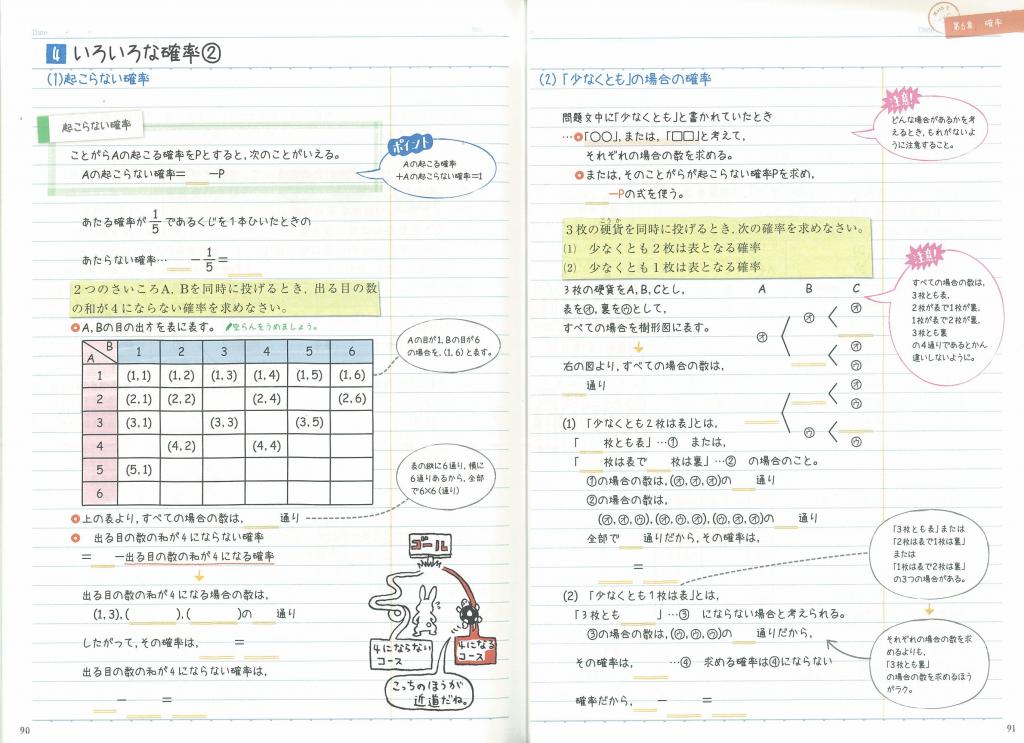 Date
4 いろいろな確率②
(1)起こらない確率
起こらない確率
ことがらAの起こる確率をPとすると,次のことがいえる。
Aの起こらない確率= −P
ポイント
Aの起こる確率
+Aの起こらない確率=1
あたる確率が1/5であるくじを1本ひいたときの
あたらない確率… −1/5=
2つのさいころA, Bを同時に投げるとき, 出る目の数
の和が4にならない確率を求めなさい。
A,Bの目の出方を表に表す。 空らんをうめましょう。
Aの目が1,Bの目が6
の場合を,(1,6)と表す。
A B 1 2 3 4 5 6
1 (1,1) (1,2) (1,3) (1,4) (1,5) (1,6)
2 (2,1) (2,2) (2,4) (2,6)
3 (3,1) (3,3) (3,5)
4 (4,2) (4,4)
5 (5,1)
6
表の縦に6通り,横に
6通りあるから,全部
で6×6(通り)
上の表より,すべての場合の数は, 通り
出る目の数の和が4にならない確率
= −出る目の数の和が4になる確率
出る目の数の和が4になる場合の数は,
(1,3),( ),( )の 通り
したがって,その確率は, =
出る目の数の和が4にならない確率は,
− =
ゴール
4にならない
コース
4になる
コース
こっちのほうが
近道だね。
90
Date
第6章 確率
(2)「少なくとも」の場合の確率
問題文中に「少なくとも」と書かれていたとき
…「○○」,または,「□□」と考えて,
それぞれの場合の数を求める。
または,そのことがらが起こらない確率Pを求め,
−Pの式を使う。
注意!
どんな場合があるかを考
えるとき,もれがないよ
うに注意すること。
3枚の硬貨を同時に投げるとき, 次の確率を求めなさい。
こうか
(1) 少なくとも2枚は表となる確率
(2) 少なくとも1枚は表となる確率
3枚の硬貨をA,B,Cとし,
表を㋔,裏を㋒として,
すべての場合を樹形図に表す。
右の図より,すべての場合の数は,
通り
A B C
㋔
㋔
㋔
㋔
㋒
㋔
㋒
㋒
㋔
㋒
注意!
すべての場合の数は,
3枚とも表,
2枚が表で1枚が裏,
1枚が表で2枚が裏,
3枚とも裏
の4通りであるとかん
違いしないように。
(1) 「少なくとも2枚は表」とは,
「 枚とも表」…① または,
「 枚は表で 枚は裏」…② の場合のこと。
①の場合の数は,(㋔,㋔,㋔)の 通り
②の場合の数は,
(㋔,㋔,㋒),(㋔,㋒,㋔),(㋒,㋔,㋔)の 通り
全部で 通りだから,その確率は,
=
「3枚とも表」または
「2枚は表で1枚は裏」
または
「1枚は表で2枚は裏」
の3つの場合がある。
(2) 「少なくとも1枚は表」とは,
「3枚とも 」…③ にならない場合と考えられる。
③の場合の数は,(㋒,㋒,㋒)の 通りだから,
その確率は, …④ 求める確率は④にならない
確率だから, − =
それぞれの場合の数を求
めるよりも,
「3枚とも裏」
の場合の数を求めるほう
がラク。
91